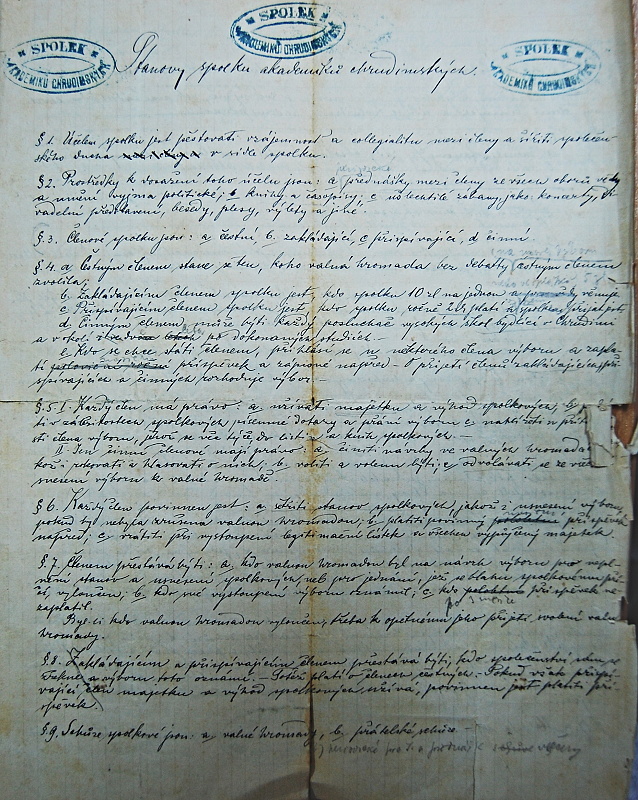 SPOLEK
AKADEMIKŮ CHRUDIMSKÝCH
SPOLEK
AKADEMIKŮ CHRUDIMSKÝCH
SPOLEK
AKADEMIKŮ CHRUDIMSKÝCH
Stanovy spolku akademiků chrudimských.
§ 1. Účelem spolku jest pěstovati vzájemnost a collegialitu mezi členy a šířiti společen-
ského ducha v sídle spolku.
§ 2. Prostředky k dosažení toho účelu jsou: a, přednášky mezi členy ze všech oborů vědy
a umění vyjma politické; b, knihy a časopisy; c, ušlechtilé zábavy, jako: koncerty, di-
vadelní představení, besedy, plesy, výlety a jiné.
§. 3. Členové spolku jsou: a, čestní, b, zakládající, c, přispívající, d, činní.
§ 4. a, Čestným členem stane se ten, koho valná hromada bez debatty čestným členem
zvolila;
b, Zakládajícím členem spolku jest, kdo spolku 10 zl na jednou věnuje
c, Přispívajícím členem spolku jest, kdo spolku ročně platí
d, Činným členem může býti každý posluchač vysokých škol bydlící v Chrudimi
a v okolí po dokonaných studiích.
e, Kdo se chce státi členem, přihlásí se u některého člena výboru a zapla-
tí příspěvek a zápisné napřed. O přijetí členů zakládajících, při-
spívajících a činných rozhoduje výbor.
§. 5. I. Každý člen má právo: a, užívati majetku a výhod spolkových, b,
ti v záležitostech spolkových, písemné dotazy a přání výboru c, nahlížeti v příto-
sti člena výboru, jenž se vše týče, do listin a knih spolkových.
II. Jen činní členové mají právo: a, činiti návrhy ve valných hromadách
rokovati a hlasovati o nich; b, voliti a voleni býti; c, odvolávati se ze vše
snesení výboru ke valné hromadě.
§ 6. Každý člen povinen jest: a, šetřiti stanov spolkových, jakož i usnesení výboru,
pokud by nebyla zrušena valnou hromadou; b, platiti povinný příspěvek
napřed; c, vrátiti při vystoupení legitimační lístek a všechen vypůjčený majetek.
§. 7. Členem přestává býti: a, kdo valnou hromadou byl na návrh výboru pro nepl-
nění stanov a usnesení spolkových, neb pro jednání, jež se blahu spolkovému
vyloučen; b, kdo své vystoupení výboru oznámí; c, kdo příspěvek ne-
zaplatil.
Byl-li kdo valnou hromadou vyloučen, třeba k opětnému jeho přijetí svolení valné
hromady.
§ 8. Zakládajícím a přispívajícím členem přestává býti, kdo společenství
řekne a výboru toto oznámí. Totéž platí o členech čestných. Pokud však přispí-
vající člen majetku a výhod spolkových užívá, povinnen jest platiti pří-
spěvek.
§ 9. Schůze spolkové jsou: a, valné hromady, b, přátelské schůze.